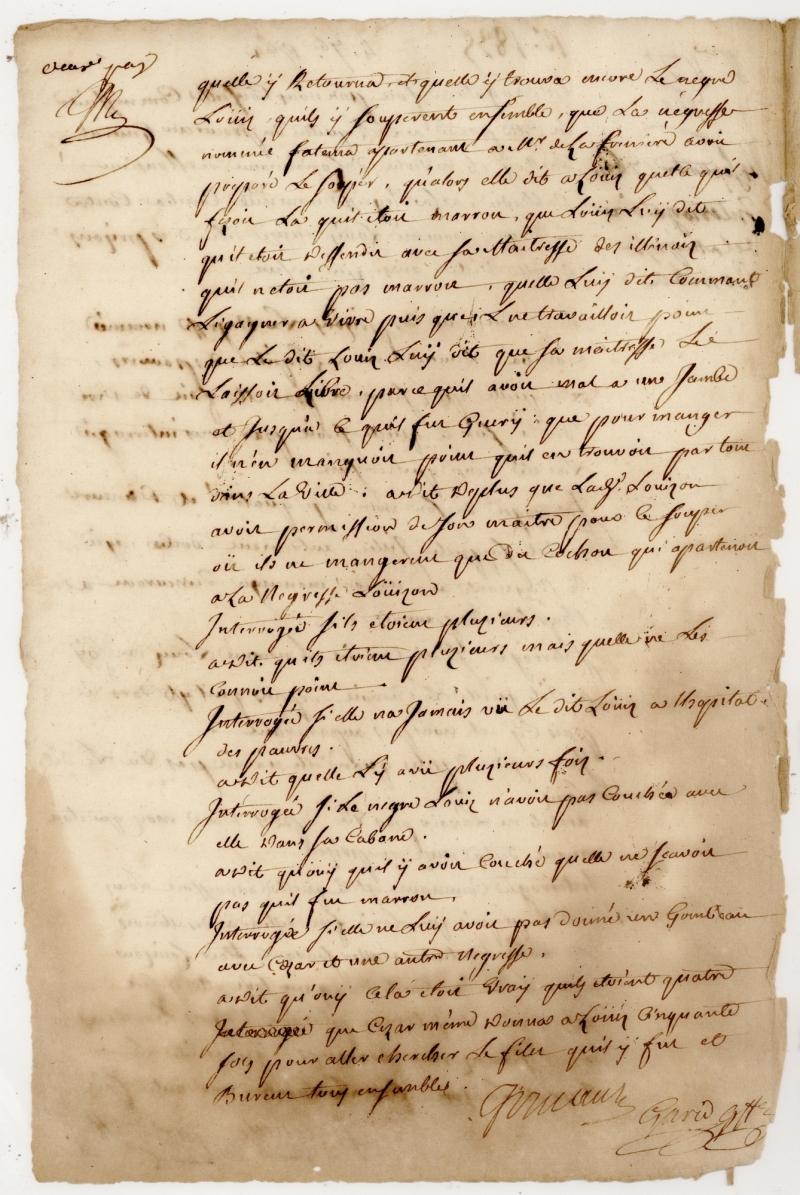 quelle y Retourna, et quelle y trouva encore Le negre
Loüis, quils y souperent ensemble, que La négresse
nommée fatema apartenant a Mr de La freniere avoit
préparé Le souper, qualors elle dit a Loüis quest ce quil
fesoit La quil etoit marron, que Loüis Luy dit
quil etoit dessendu avec sa Maitresse des illinois
quil netoit pas marron, quelle Luy dit Comment
gagner a vivre puis que Luy ne travailloit point
que Le dit Loüis Luy dit que sa maitresse Le
Laissoit Libre, parce quil avoit mal a une Jambe
et Jusqu'a ce quil fut Guery: que pour manger
il n'en manquoit point quil en trouvoit par tout
dans La ville; a dit deplus que Lad. Louison
avoit permission de son maitre pour le souper
où ils ne mangerent que du Cochon qui apartenoit
a La Negresse Loüison
Interrogée s'ils etoient plusieurs.
a dit quils etoient plusieurs mais quelle ne Les
Connoit point
Interrogée si elle na Jamais vü Le dit Loüis a Lhopital
des pauvres.
a dit quelle Ly a vü plusieurs fois.
Interrogée si Le negre Loüis n'avoit pas Couchée avec
elle dans sa Cabane.
a dit qu'ouy quil y avoit Couché quelle ne scavoit
pas quil fut marron.
Interrogée si elle ne Luy avoit pas donné un Gombeau
avec Cezar et une autre Negresse.
a dit qu'ouy Cela etoit vray quils etoient quatre
que Cezar même donna a Loüis Cinquante
sols pour aller chercher Le filet quil y fut et
Burent tous ensembles.
Garic Gff